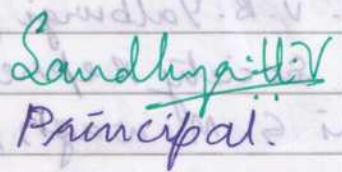 Sandhya.H.V
Principal.